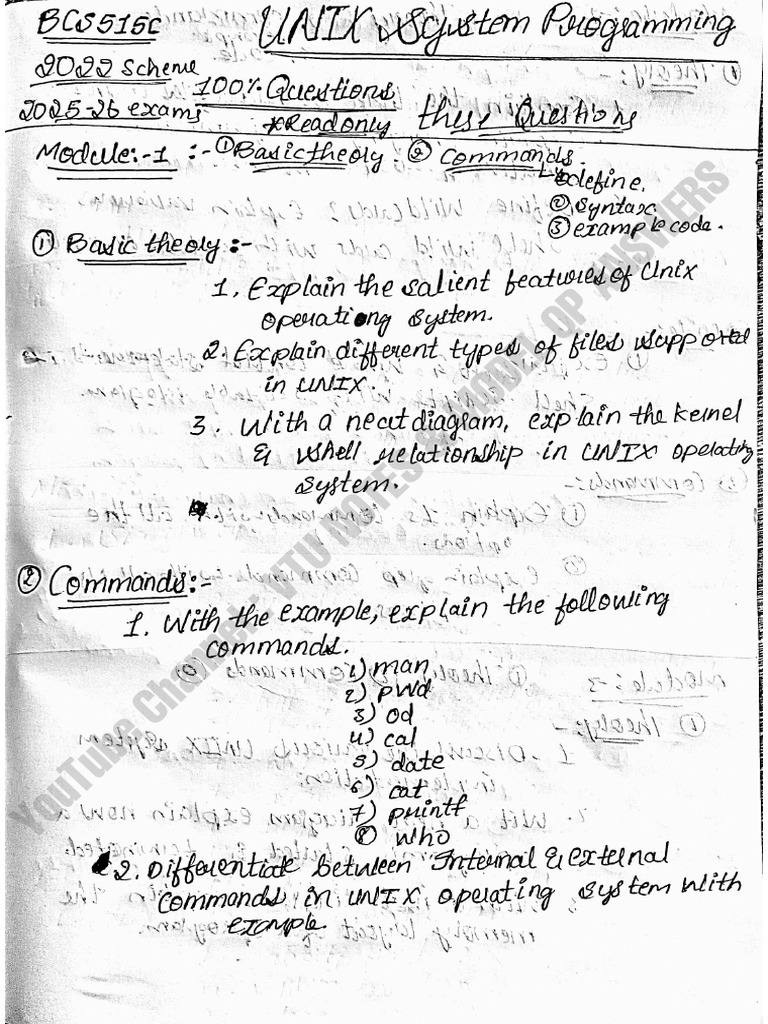 BCS515C UNIX System Programming
2022 scheme
100% Questions
2025-26 exams *Read only these Questions
Module:-1 :- ① Basic theory. ② Commands.
① define.
② Syntax
③ example code.
① Basic theory:-
1. Explain the salient features of Unix
operationg system.
2. Explain different types of files supported
in UNIX.
3. With a neat diagram, explain the kernel
& shell relationship in UNIX operating
system.
② Commands:-
1. With the example, explain the following
commands.
1) man
2) pwd
3) od
4) cal
5) date
6) cat
7) printf
⑧ who
2. Differentiate between Internal & external
commands in UNIX operating system with
example.
YouTube Channel: VTU NOTES & MODEL QP ANSWERS